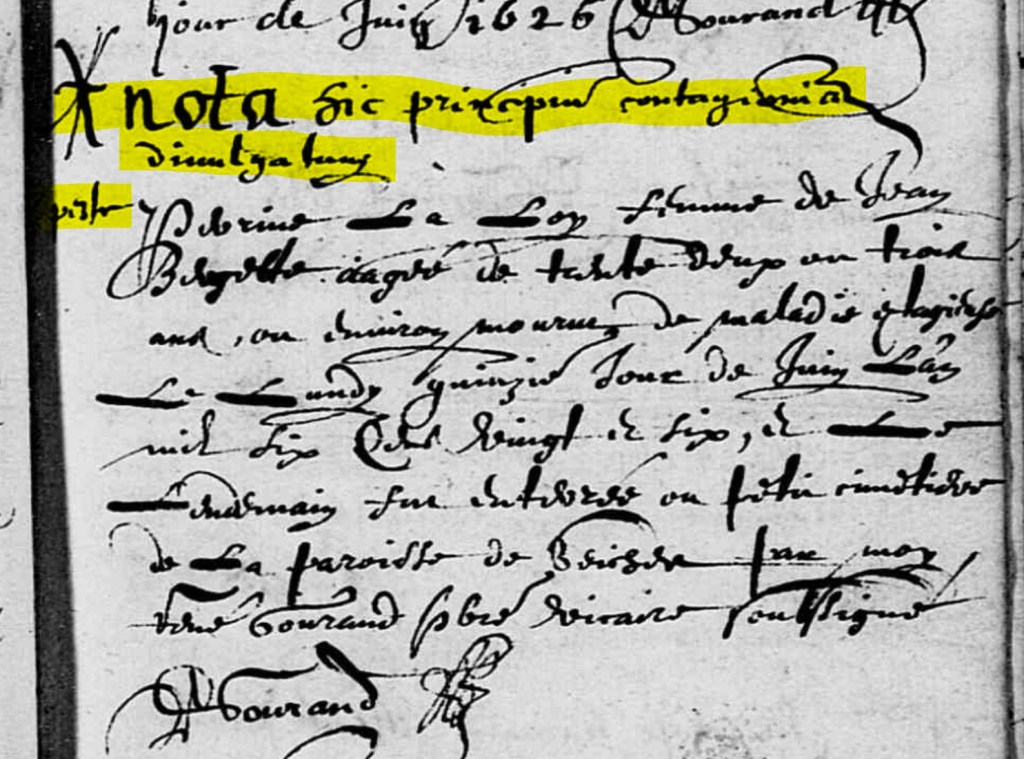 jour de Juin 1626 Gourand
nota hic principiu contagionis
divulgatum
peste
Perrine Le Loy femme de Jean
aagée de trente deux ou trois
ans, ou environ mourut de maladie cõtagieuse
Le Lundy quinziẽ Jour de Juin L'an
mil six Cens vingt et six, et Le
Lendemain fut enterrée ou petit cimetiere
de La paroisse de Seiches par moy
René Gourand pbrẽ vicaire soubsigné
RGourand